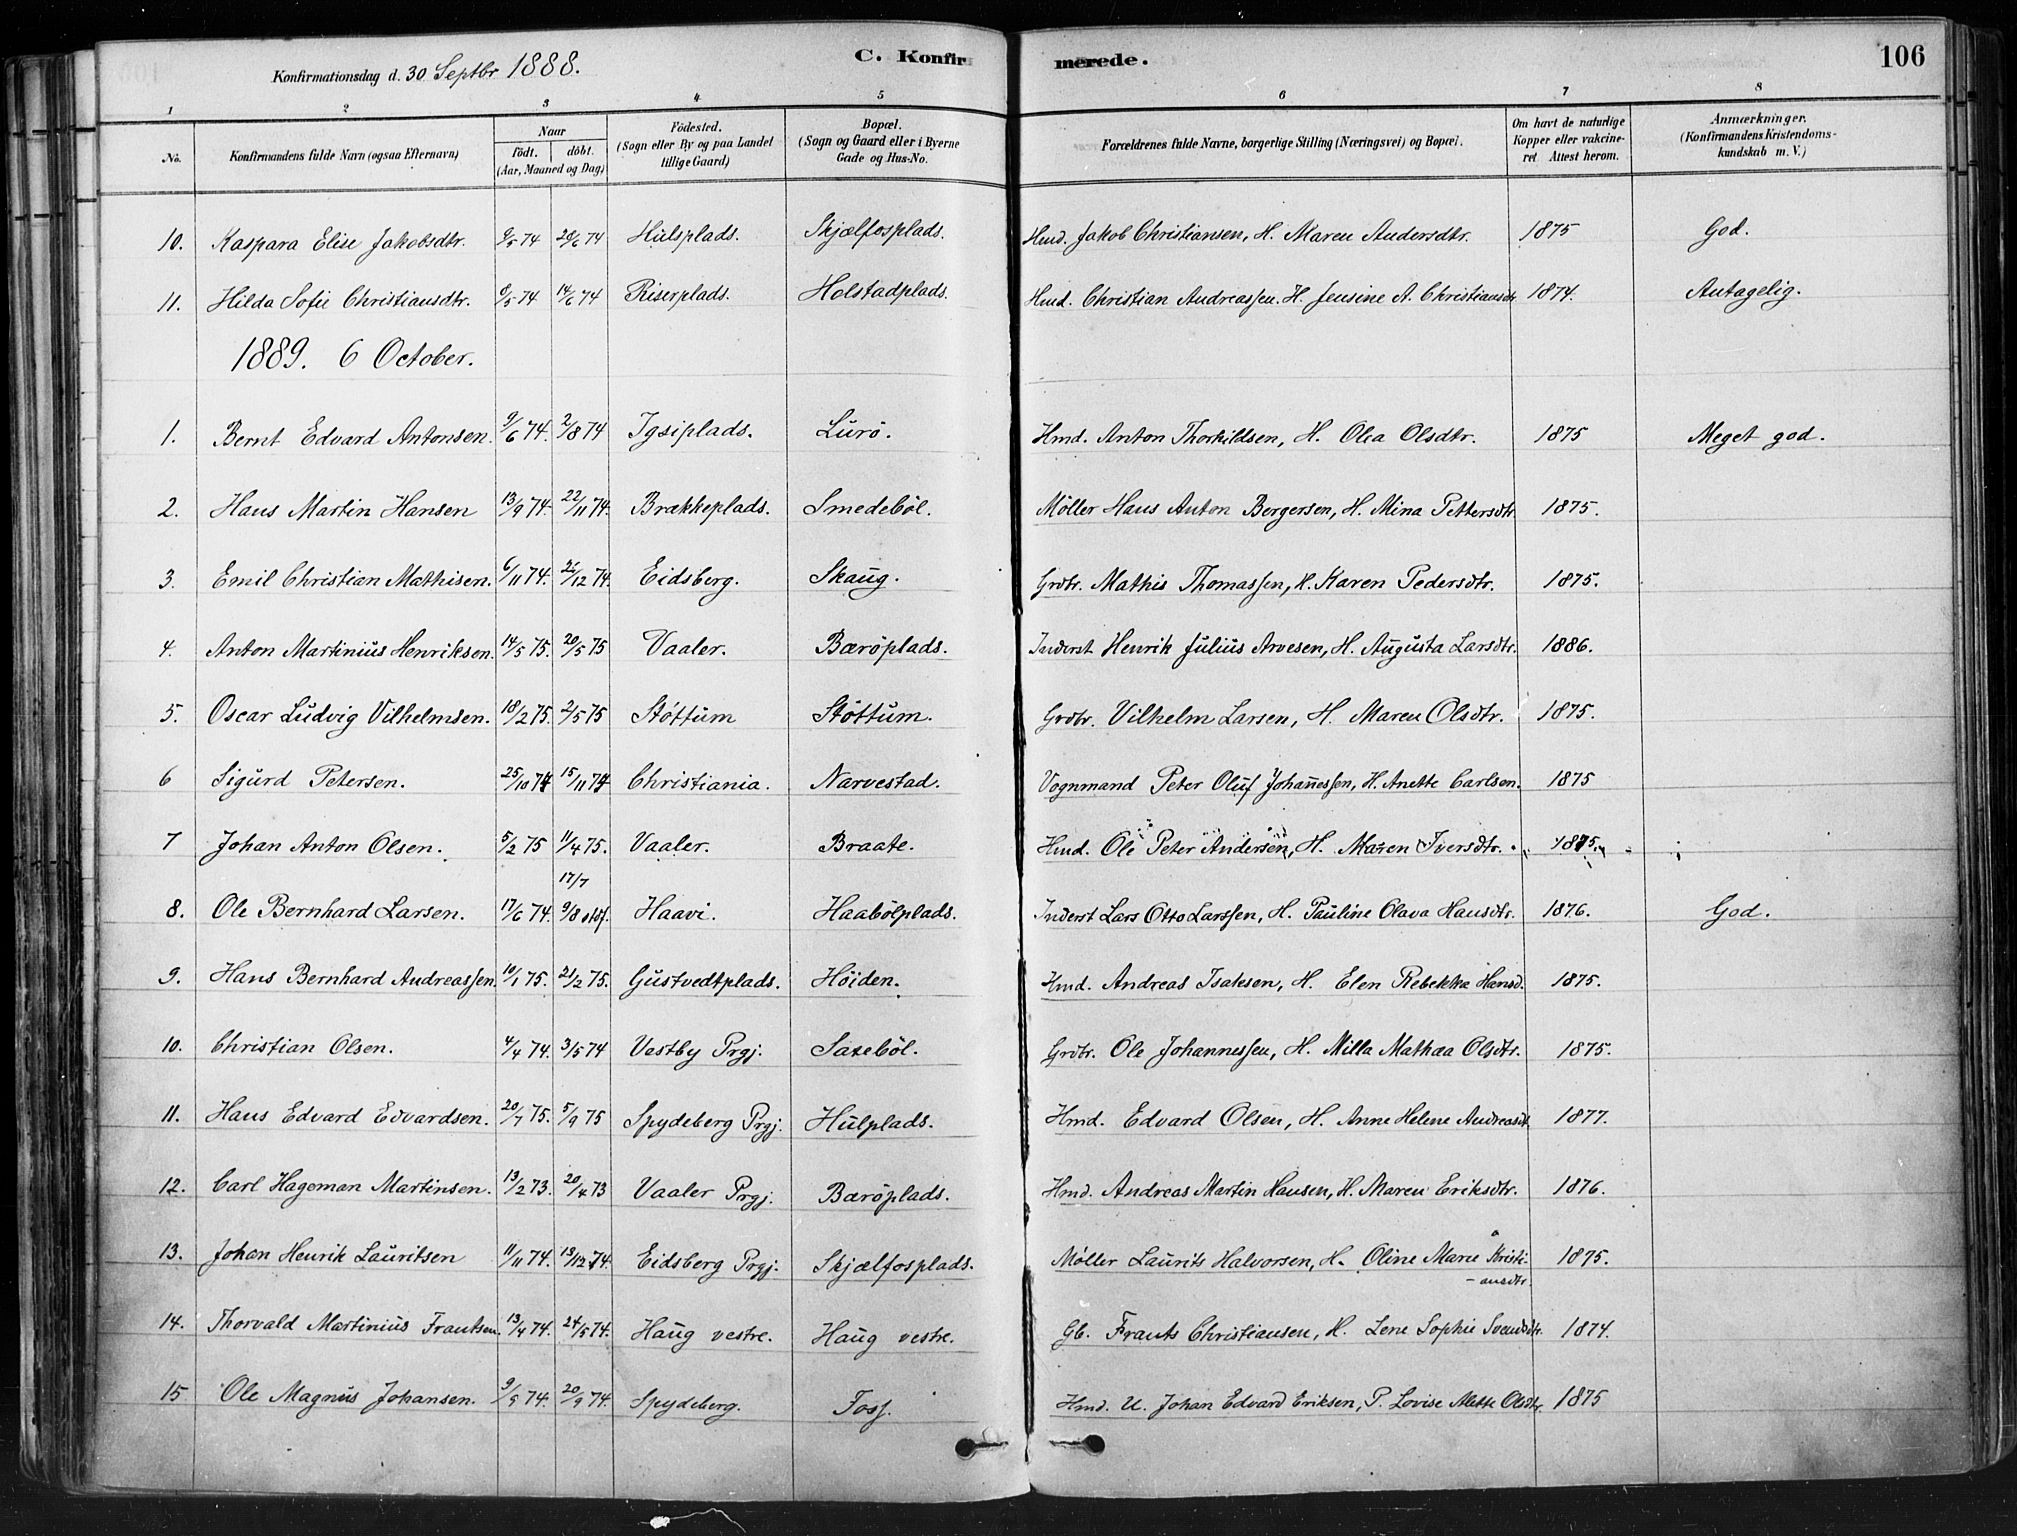 106
C. Konfirmerede.
Konfirmationsdag d. 30 Septbr 1888.
1 2 3 4 5 6 7 8
No. Konfirmandens fulde Navn (ogsaa Efternavn) Naar født. døbt. (Aar, Maaned og Dag) Fødested. (Sogn eller By og paa Landet tillige Gaard) Bopæl. (Sogn og Gaard eller i Byerne Gade og Hus-No. Forældrenes fulde Navne, borgerlige Stilling (Næringsvei) og Bopæl. Om havt de naturlige Kopper eller vakcineret. Attest herom. Anmærkninger. (Konfirmandens Kristendomskundskab m. V.)
10. Kaspara Elise Jakobsdtr. 9/5 74 /6 74 Hulsplads. Skjælfosplads. Hmd. Jakob Christiansen, H. Maren Andersdtr. 1875 God.
11. Hilda Sofie Christiansdtr. /5 74 14/6 74 Riserplads. Holstadplads. Hmd. Christian Andreassen. H. Jensine A. Christiansdtr. 1874. Antagelig.
1889. 6 October.
1. Bernt Edvard Antonsen. 9/6 74. 2/8 74 Igsiplads. Lurö. Hmd. Anton Thorkildsen, H. Olea Olsdtr. 1875 Meget god.
2. Hans Martin Hansen 13/9 74. 22/11 74. Brækkeplads. Smedeböl. Møller Hans Anton Borgersen, H. Mina Pettersdtr. 1875.
3. Emil Christian Mathisen. 6/11 74. /12 74. Eidsberg. Skaug. Grdbr. Mathis Thomassen, H. Karen Pedersdtr. 1875.
4. Anton Martinius Henriksen. 14/5 75. 20/5 75 Vaaler. Bæröplads. Inderst Henrik Julius Arvesen, H. Augusta Larsdtr. 1886.
5. Oscar Ludvig Vilhelmsen. 18/2 75. 2/5 75 Støttum Støttum. Grdbr. Vilhelm Larsen, H. Maren Olsdtr. 1875.
6 Sigurd Petersen. 25/10 74 15/11 74 Christiania. Narvestad. Vognmand Peter Oluf Johannessen, H. Anette Carlsen. 1875
7 Johan Anton Olsen. 5/2 75 11/4 75. Vaaler. Braate. Hmd. Ole Peter Andersen, H. Maren Iversdtr. 1875.
17/7
8. Ole Bernhard Larsen. 17/6 74. 9/8 stdf. Haavi. Haabölplads. Inderst Lars Otto Larssen, H. Pauline Olava Hansdtr. 1876. God.
9. Hans Bernhard Andreassen. 10/1 75. 21/2 75. Gustvedtplads. Höiden. Hmd. Andreas Isaksen, H. Elen Rebekka Hansd. 1875.
10. Christian Olsen. 4/4 74. 3/5 74 Vestby Prgj. Saxeböl. Grdbr. Ole Johannessen, H. Milla Mathea Olsdtr. 1875.
11. Hans Edvard Edvardsen. 20/7 75. 5/9 75 Spydeberg Prgj. Hulplads. Hmd. Edvard Olsen, H. Anne Helene Andreasdt. 1877.
12. Carl Hageman Martinsen. 13/2 73. 20/4 73 Vaaler Prgj. Bæröplads. Hmd. Andreas Martin Hansen, H. Maren Eriksdtr. 1876.
13. Johan Henrik Lauritsen 11/11 74. 13/12 74. Eidsberg Prgj. Skjælfosplads. Møller Laurits Halvorsen, H. Oline Marie Kristi- 1875.
-ansdtr.
14. Thorvald Martinius Frantsen. 13/4 74. 24/5 74. Haug vestre. Haug vestre. Gb. Frants Christiansen, H. Lene Sophie Svendsdtr. 1874.
15. Ole Magnus Johansen. /9 74. 20/9 74. Spydeberg. Foss. Hmd. U. Johan Edvard Eriksen, P. Lovise Alette Olsdtr. 1875